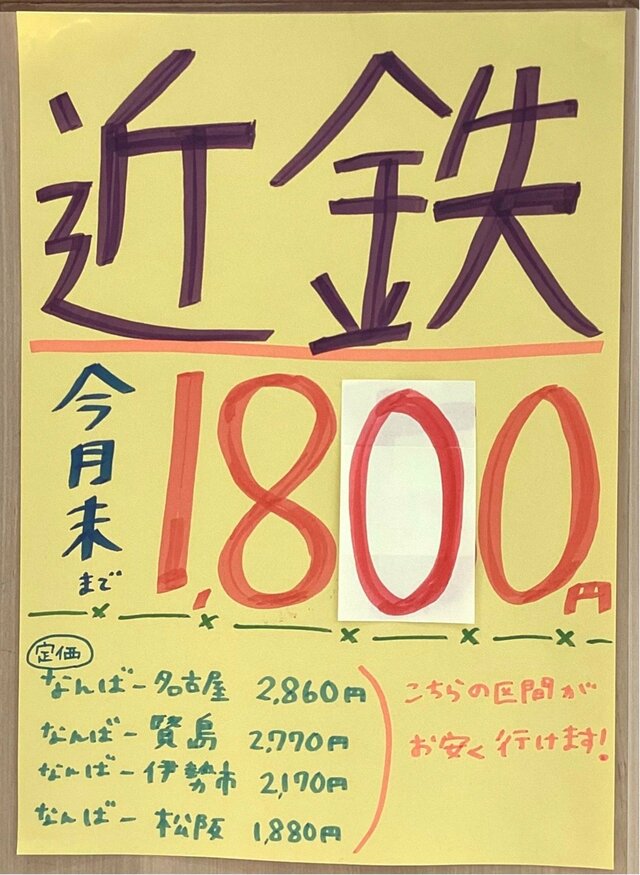 近鉄
今月末まで
1,800円
定価
なんばー名古屋 2,860円
なんばー賢島 2,770円
なんばー伊勢市 2,170円
なんばー松阪 1,880円
こちらの区間が
お安く行けます!